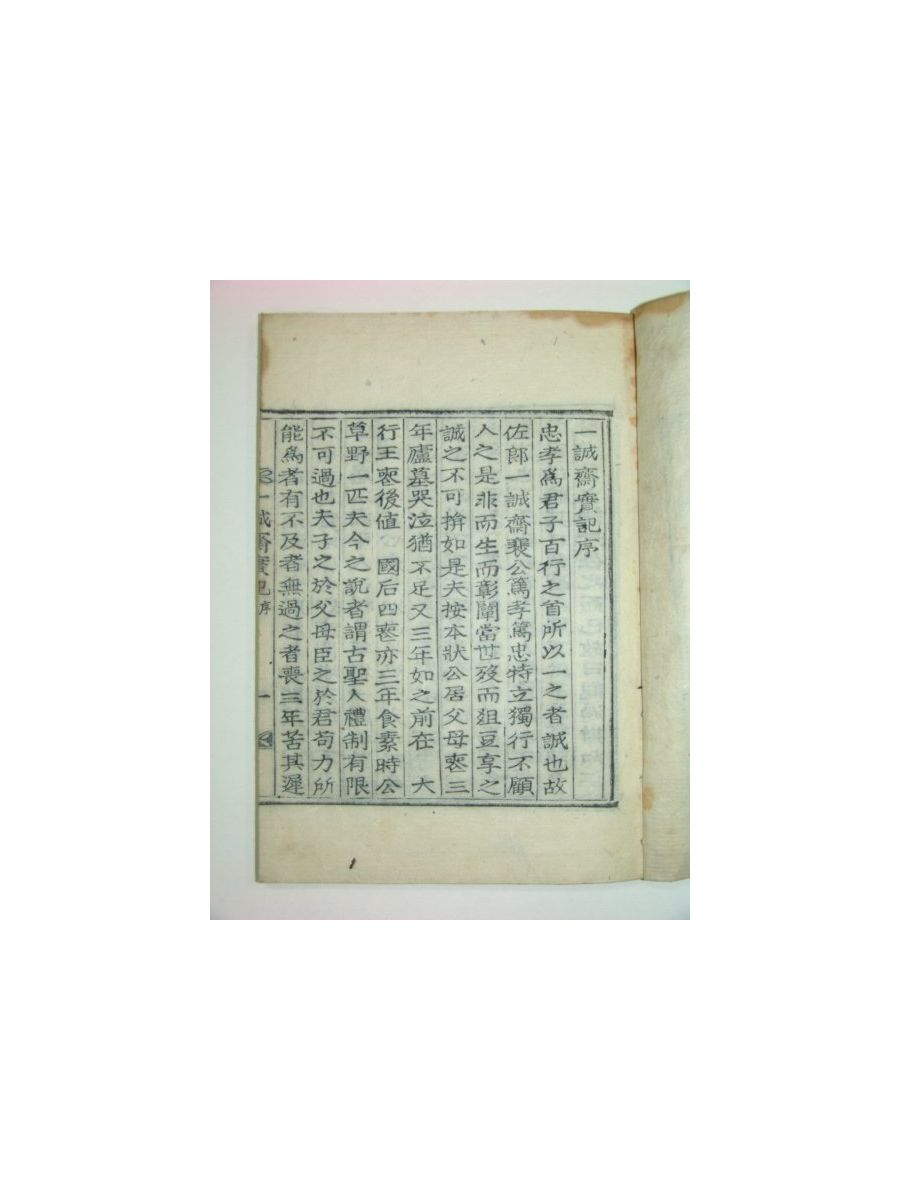 一誠齋實記序
忠孝爲君子百行之首所以一之者誠也故
佐郎一誠齋裴公篤孝篤忠特立獨行不顧
人之是非而生而彰闡當世歿而俎豆享之
誠之不可揜如是夫按本狀公居父母喪三
年廬墓哭泣猶不足又三年如之前在　大
行王喪後値　國后四喪亦三年食素時公
草野一匹夫今之說者謂古聖人禮制有限
不可過也夫子之於父母臣之於君苟力所
能爲者有不及者無過之者喪三年苦其遲
一誠齋實記 序 一